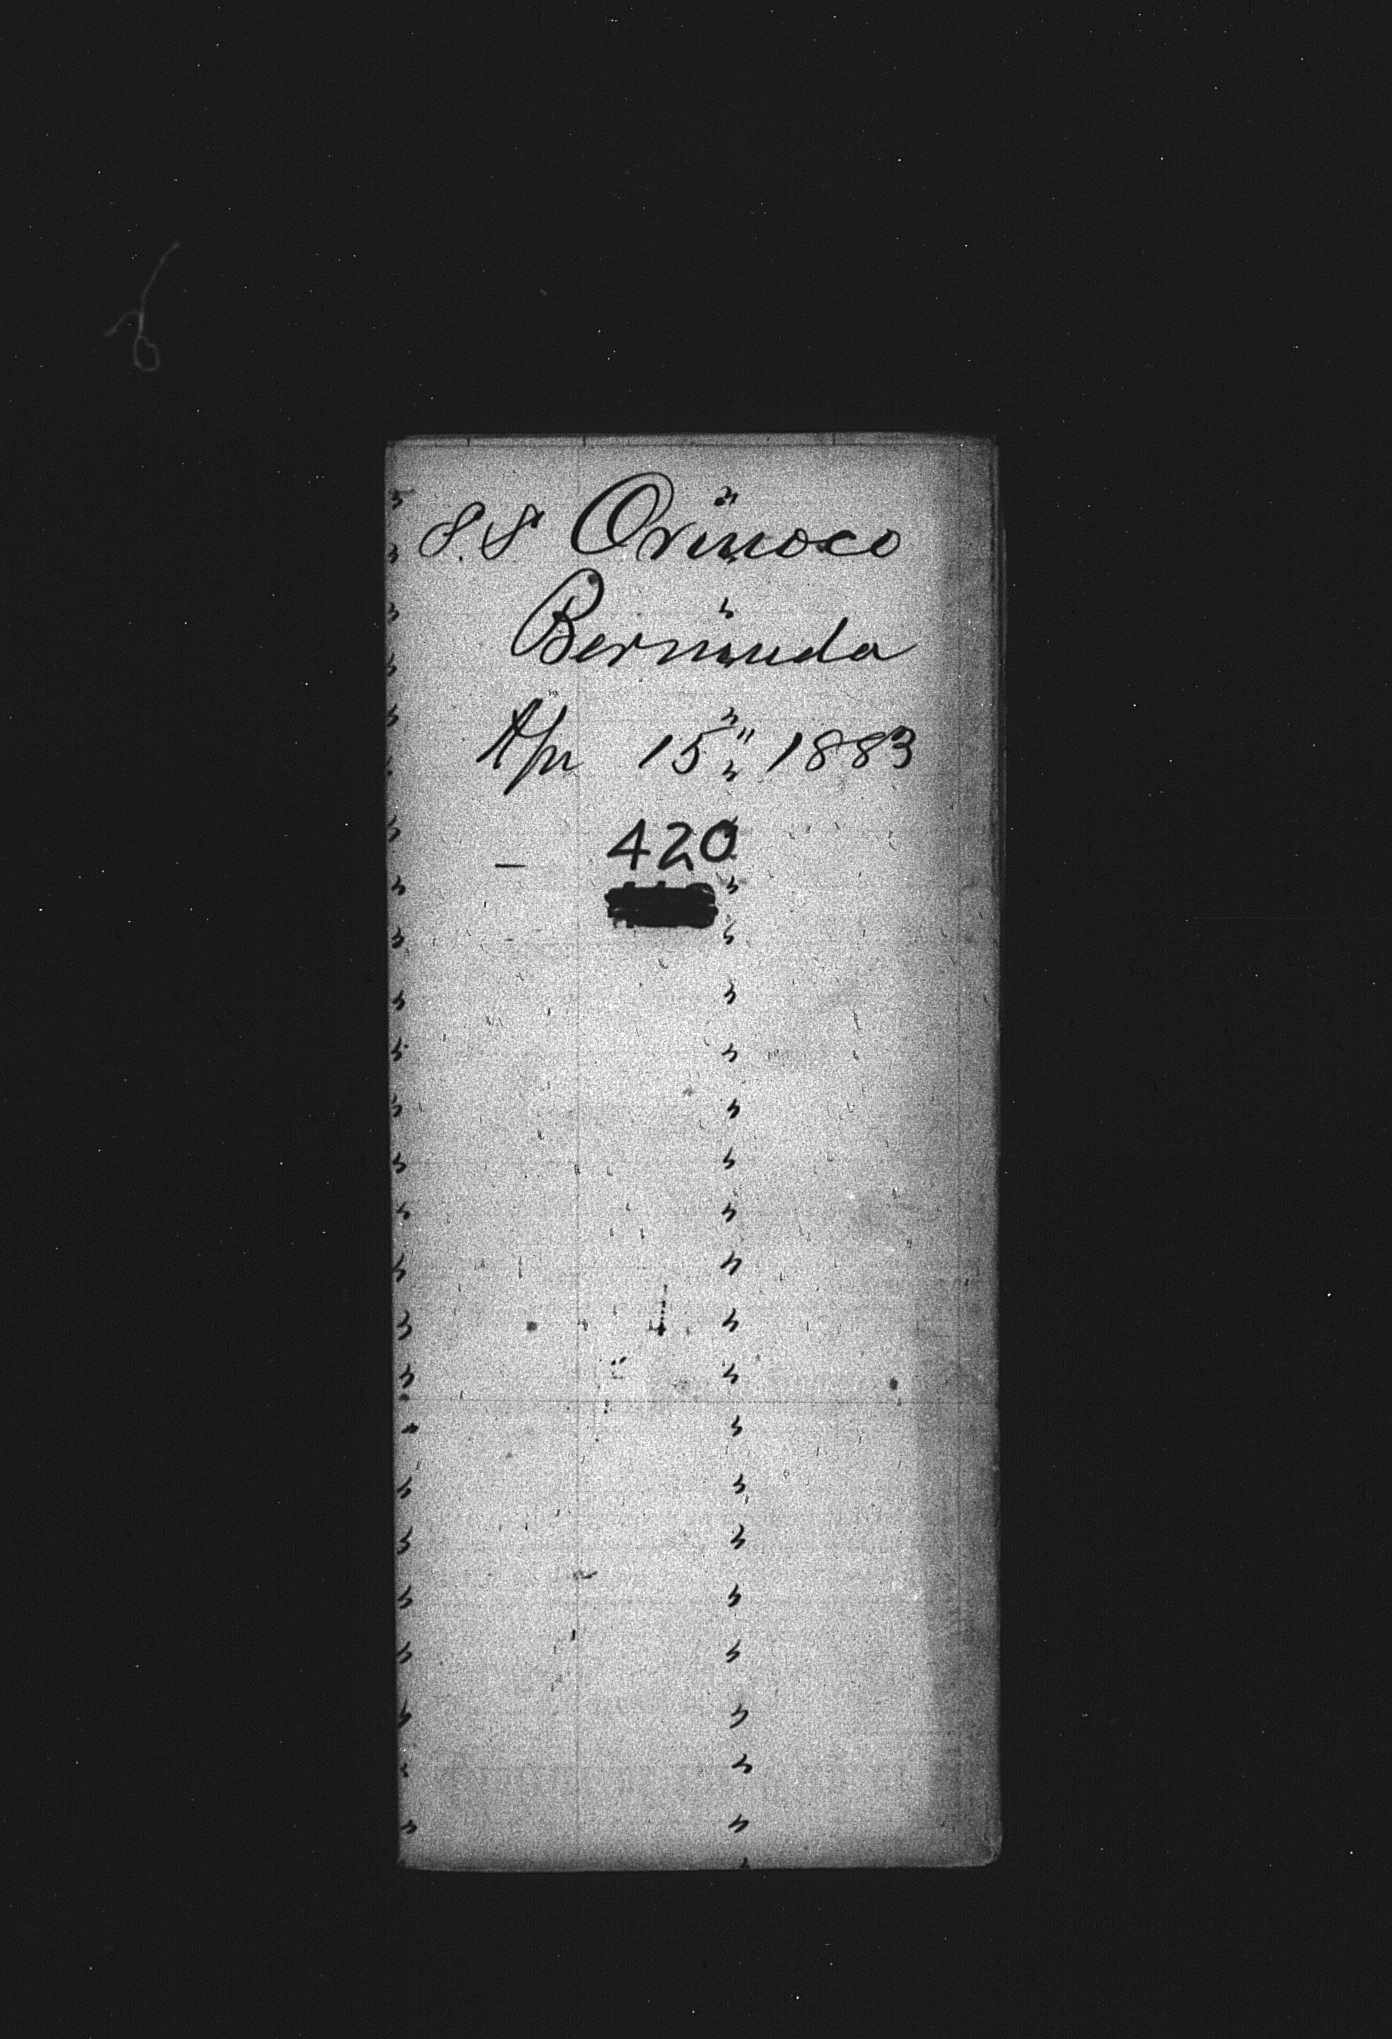 S.S Orinoco
Bermuda
Apr 15" 1883
420